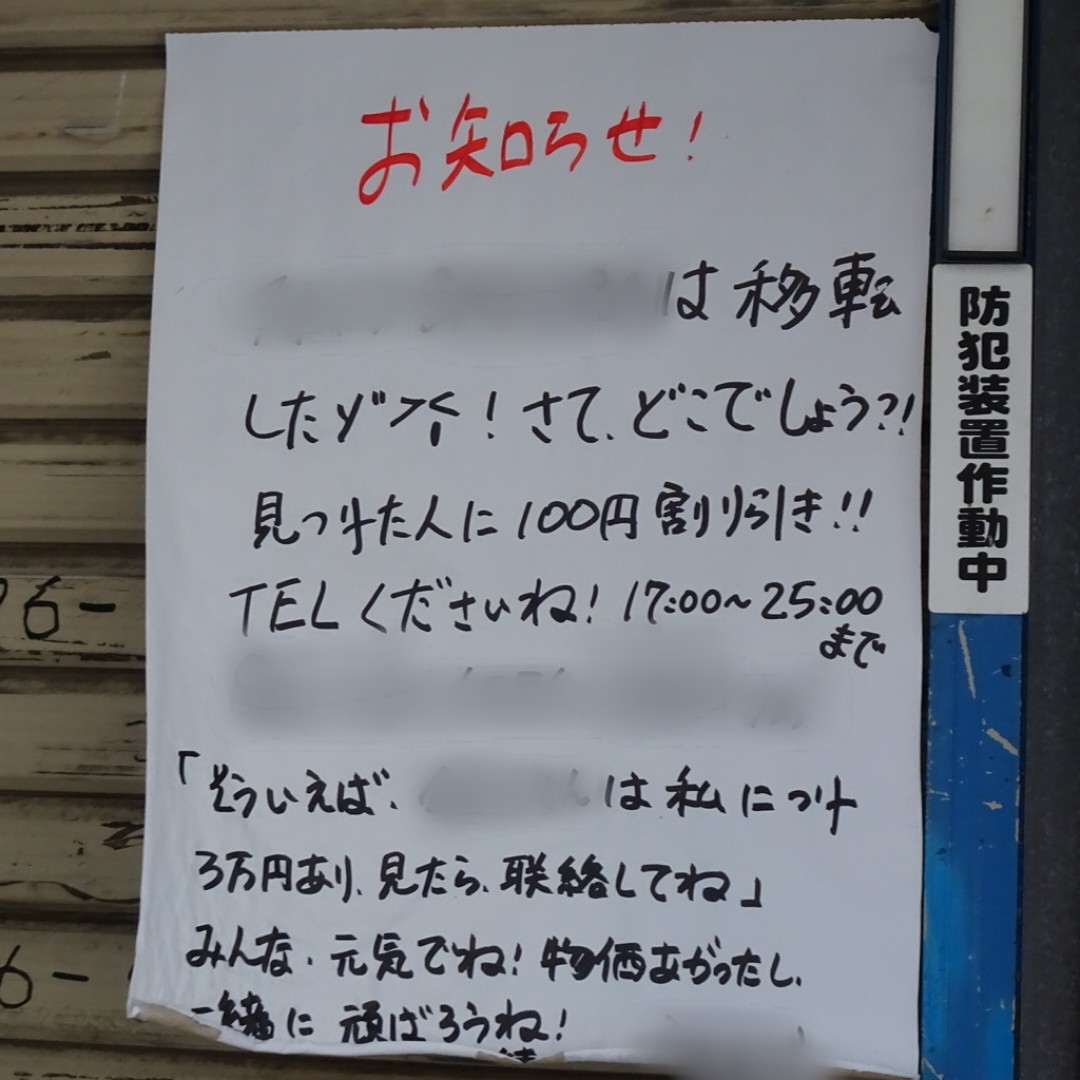 お知らせ!
は移転
したゾ
! さて、どこでしょう?!
見つけた人に100円割り引き!!
TELくださいね! 17:00~25:00
まで
「そういえば、
は私につけ
3万円あり、見たら、联絡してね」
みんな、元気でね! 物価あがったし、
一緒に頑ばろうね!
防犯装置作動中
6-
6-